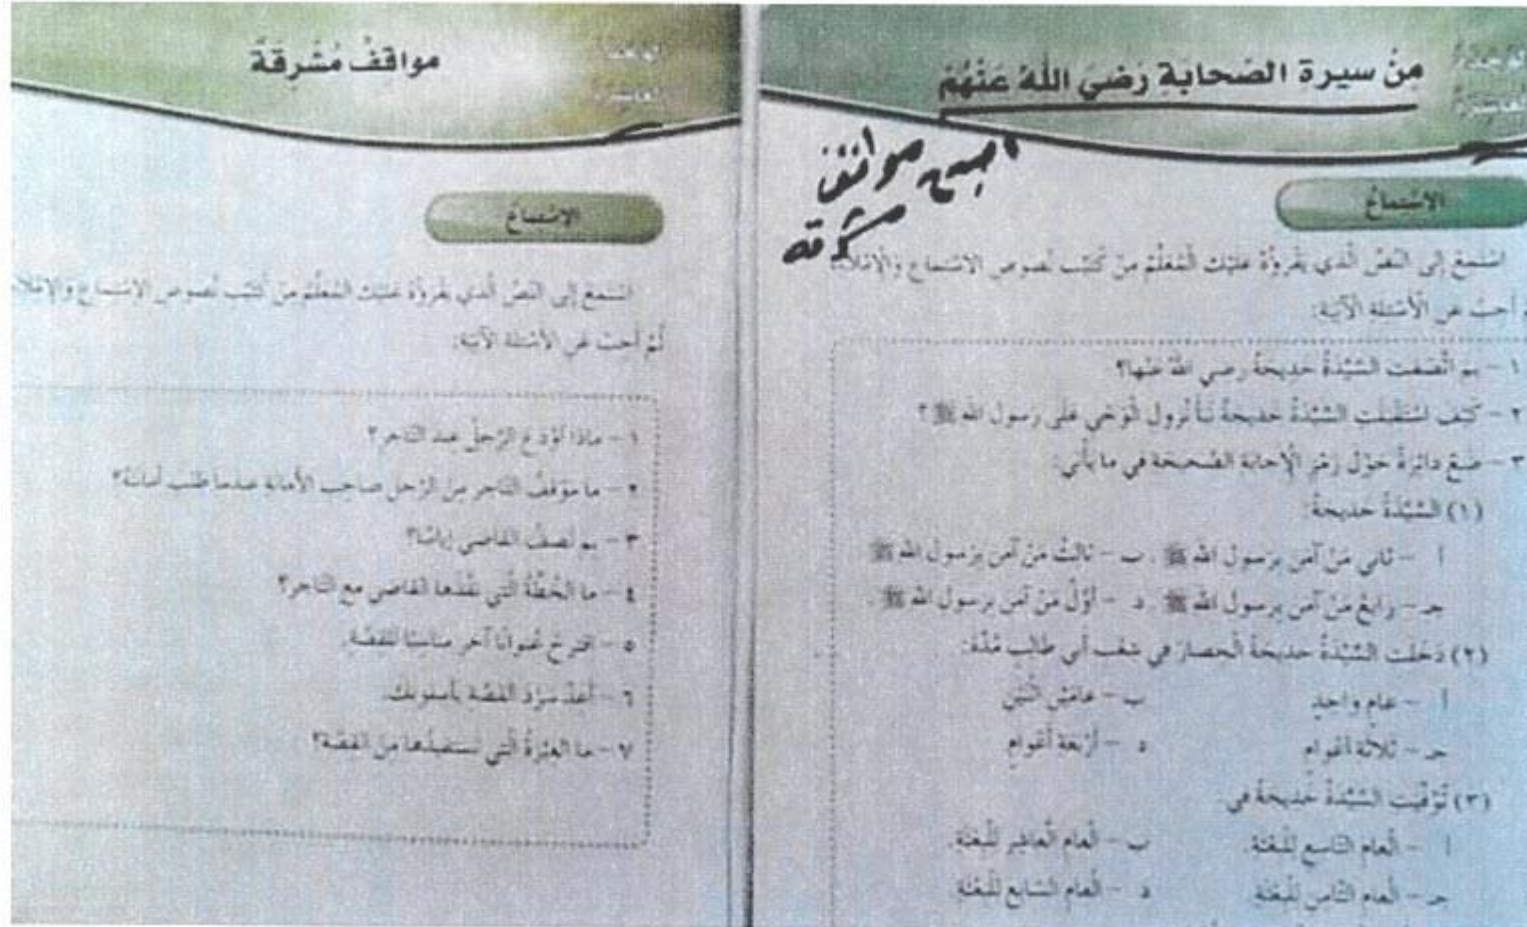 من سيرة الصحابة رضي الله عنهم
الوحدة
العاشرة
أصبح مواقف
مشرقة
الاستماع
استمع إلى النص الذي يقرؤه عليك المعلم من كتيب نصوص الاستماع والإملاء
ثم أجب عن الأسئلة الآتية:
١ - بم اتصفت السيدة خديجة رضي الله عنها؟
٢ - كيف استقبلت السيدة خديجة نبأ نزول الوحي على رسول الله ﷺ؟
٣ - ضع دائرة حول رمز الإجابة الصحيحة في ما يأتي:
(١) السيدة خديجة:
أ - ثاني من آمن برسول الله ﷺ . ب - ثالث من آمن برسول الله ﷺ
جـ - رابع من آمن برسول الله ﷺ . د - أول من آمن برسول الله ﷺ .
(٢) دخلت السيدة خديجة الحصار في شعب أبي طالب مدة:
أ - عام واحد ب - عامين اثنين
جـ - ثلاثة أعوام د - أربعة أعوام
(٣) توفيت السيدة خديجة في
أ - العام التاسع للبعثة. ب - العام العاشر للبعثة.
جـ - العام الثامن للبعثة د - العام السابع للبعثة
مواقف مشرقة
الوحدة
العاشرة
الاستماع
استمع إلى النص الذي يقرؤه عليك المعلم من كتيب نصوص الاستماع والإملاء
ثم أجب عن الأسئلة الآتية:
١ - ماذا أودع الرجل عند التاجر؟
٢ - ما موقف التاجر من الرجل صاحب الأمانة عندما طلب أمانته؟
٣ - بم تصف القاضي إياسًا؟
٤ - ما الخطة التي نفذها القاضي مع التاجر؟
٥ - اقترح عنوانًا آخر مناسبًا للقصة.
٦ - أعد سرد القصة بأسلوبك.
٧ - ما العبرة التي تستفيدها من القصة؟